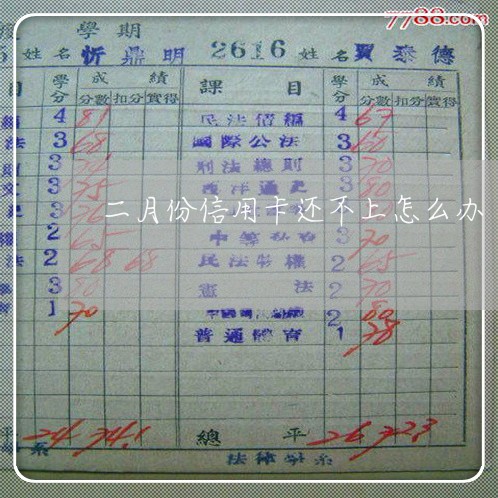 7788.com
學期
姓名 忻鼎明 2616 姓名 賈泰德
目 學分 成績 課目 學分 成績
分數 扣分 實得 分數 扣分 實得
4 81 民法債編 4 67
法 3 68 國際公法 3 60
3 刑法總則 3 70
3 75 西洋通史 3 80
二月份信用卡还不上怎么办
2 65 3 70
法 2 68 68 民法物權 2 65
3 80 憲法 2 70
1 70 2 80
普通體育 1 78
平 24 74.1 總平 26 72.3
系 法律學系